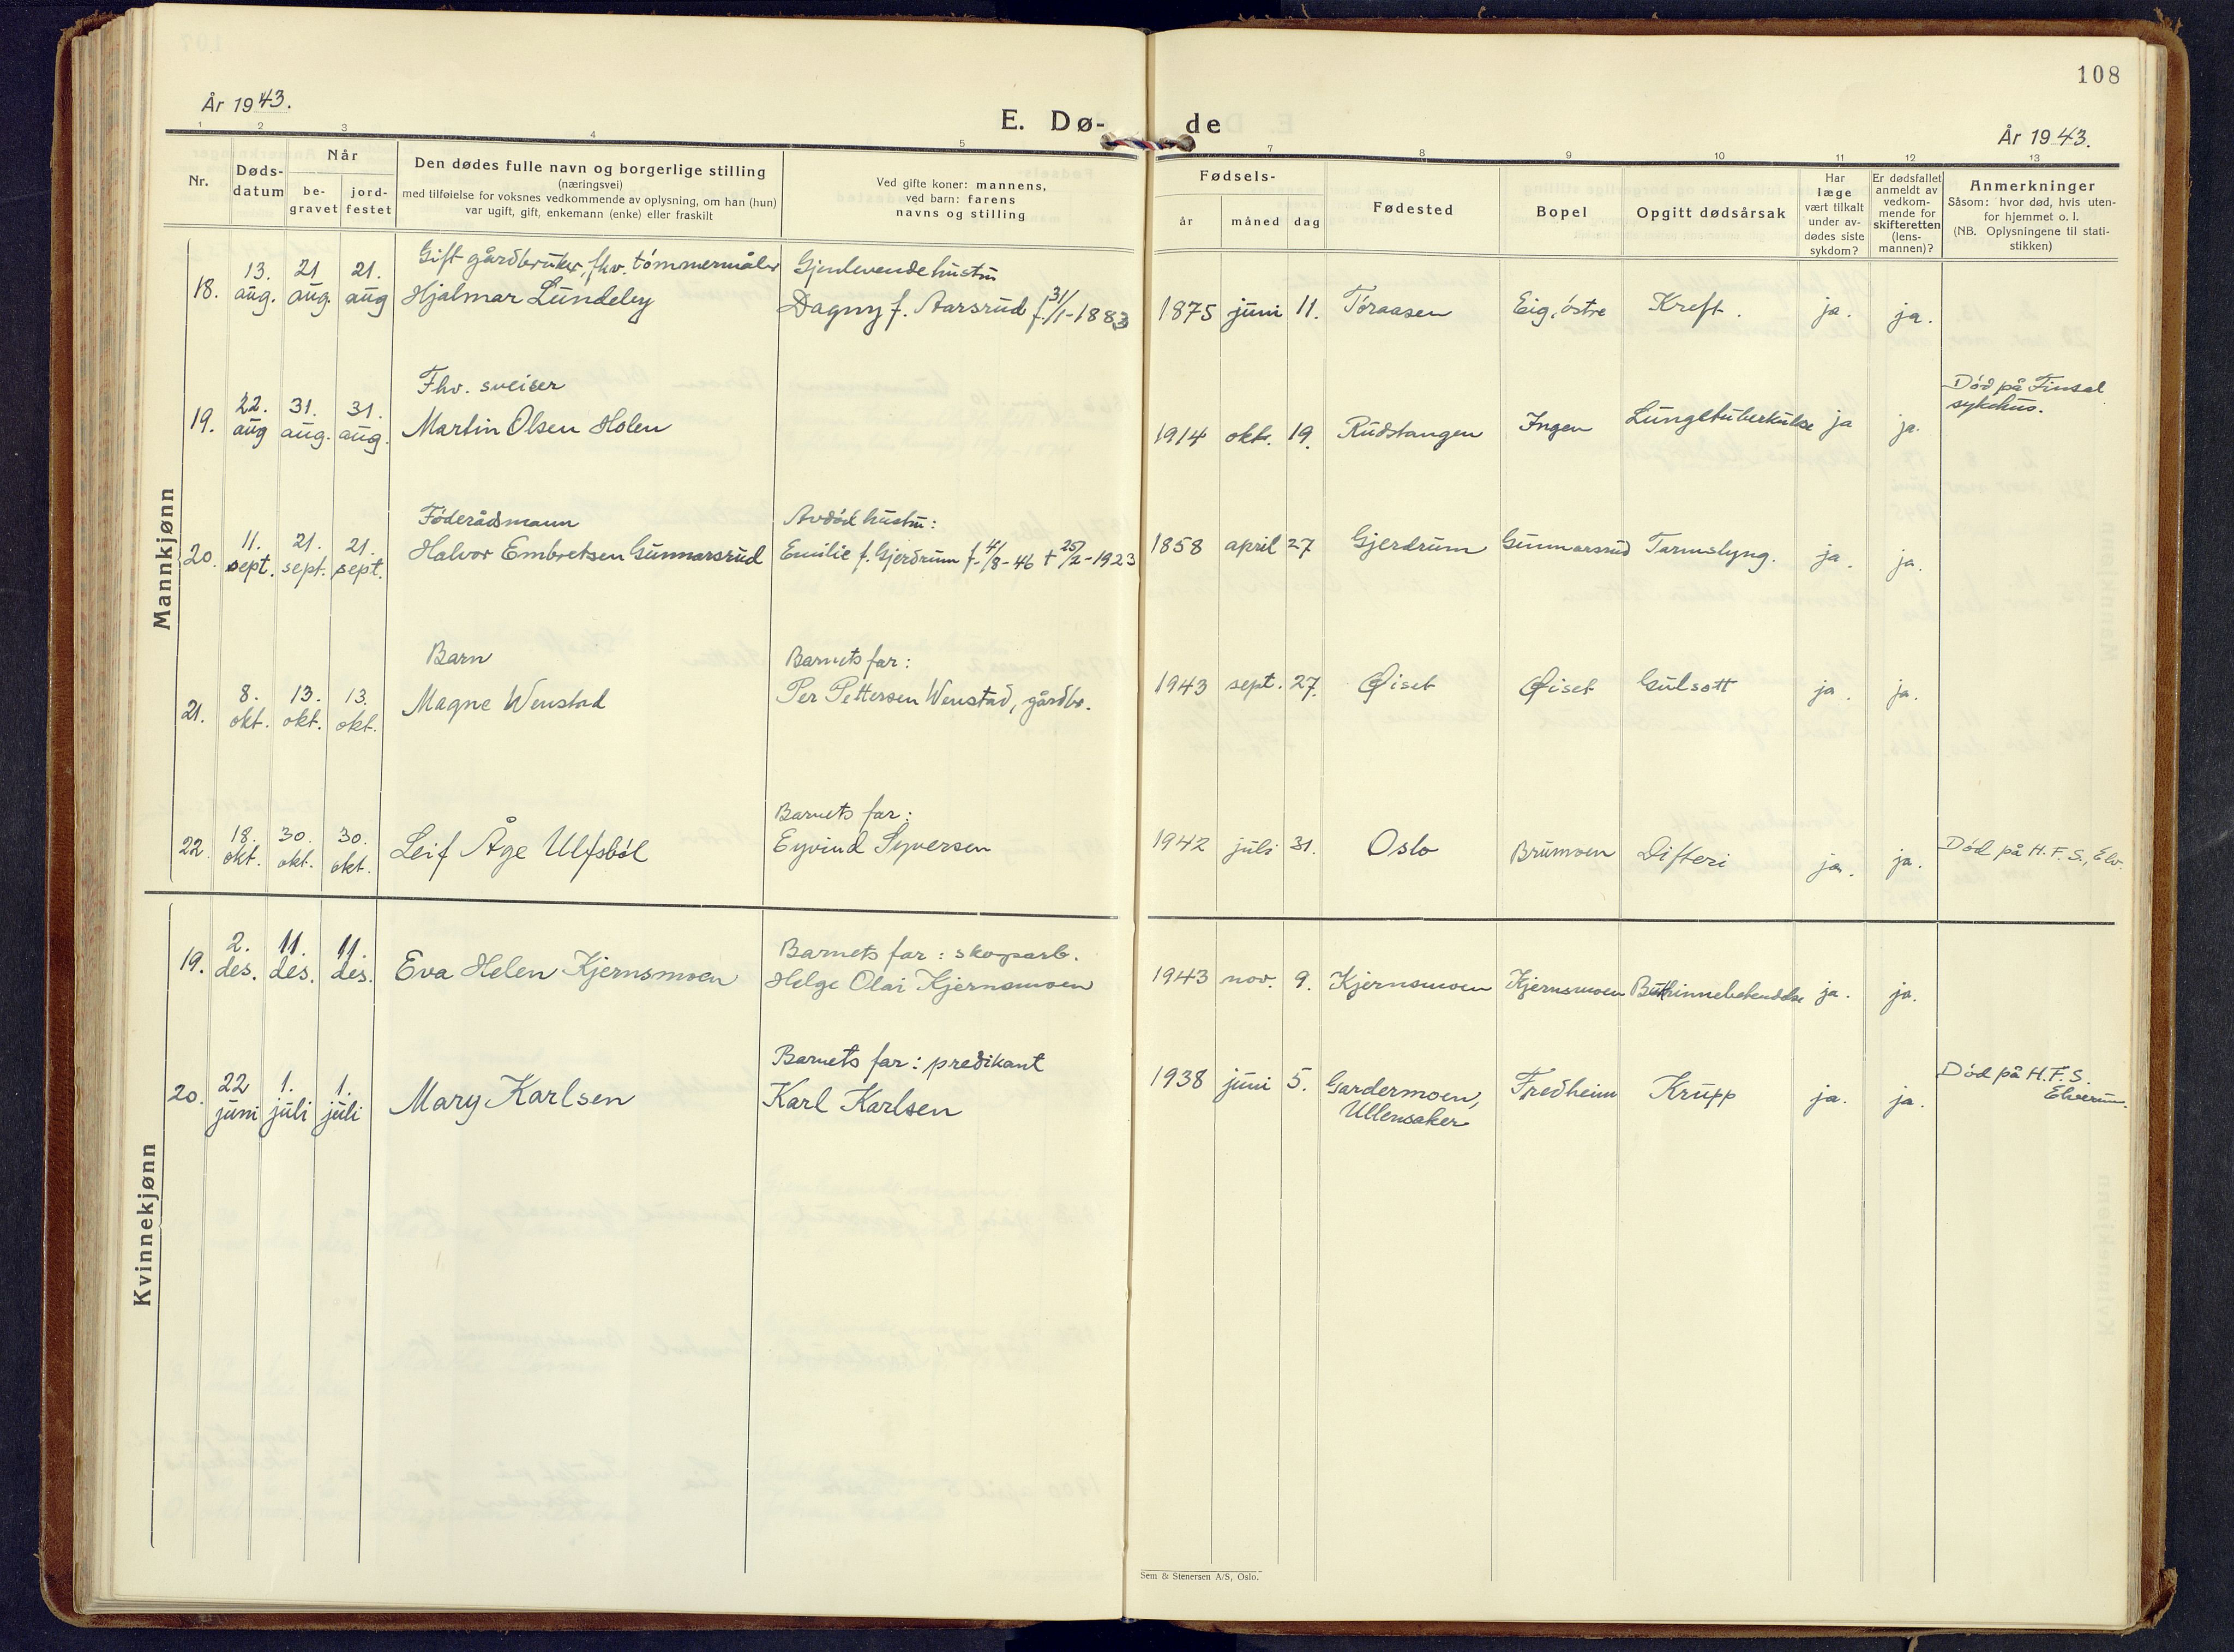 108
År 1943.
E. Dø-
de
År 1943.
1 2 3 4 5 7 8 9 10 11 12 13
Nr.
Døds-
datum
Når
be-
gravet
jord-
festet
Den dødes fulle navn og borgerlige stilling
(næringsvei)
med tilføielse for voksnes vedkommende av oplysning, om han (hun)
var ugift, gift, enkemann (enke) eller fraskilt
Ved gifte koner: mannens,
ved barn: farens
navns og stilling
Fødsels-
år måned dag
Fødested
Bopel
Opgitt dødsårsak
Har
læge
vært tilkalt
under av-
dødes siste
sykdom?
Er dødsfallet
anmeldt av
vedkom-
mende for
skifteretten
(lens-
mannen)?
Anmerkninger
Såsom: hvor død, hvis uten-
for hjemmet o. l.
(NB. Oplysningene til stati-
stikken)
Mannkjønn
Gift gårdbruker, fhv. tømmermåler Gjenlevende hustru
18. 13. aug. 21 aug. 21. aug Hjalmar Lundeby Dagny f. Aarsrud f. 31/1-1883 1875 juni 11. Toraasen Eig, østre Kreft. ja. ja.
Fhv. sveiser
19. 22. aug 31. aug. 31. aug. Martin Olsen Holen 1914 okt. 19. Rudstangen Ingen Lungetuberkulose ja ja. Død på Finsal
sykehus.
Føderådsmann Avdød hustru:
20. 11. sept. 21. sept. 21. sept. Halvor Embretsen Gunnarsrud Emilie f. Gjerdrum f. 4/8-46 + 25/2-1923 1858 april 27 Gjerdrum Gunnarsrud Tarmslyng. ja. ja.
Barn Barnets far:
21. 8. okt. 13. okt. 13. okt. Magne Wenstad Per Pettersen Wenstad, gårdbr. 1943 sept. 27. Øiset Øiset Gulsott ja. ja.
Barnets far:
22. 18. okt. 30. okt. 30. okt. Leif Åge Ulfsbøl Eyvind Syversen 1942 juli 31. Oslo Brumoen Difteri ja. ja. Død på H. F. S., Elv.
Kvinnekjønn
Barnets far: skogarb.
19. 2. des. 11. des. 11. des. Eva Helen Kjernsmoen Helge Olai Kjernsmoen 1943 nov. 9. Kjernsmoen Kjernsmoen ja. ja.
Barnets far: predikant
20. 22 juni 1. juli 1. juli Mary Karlsen Karl Karlsen 1938 juni 5. Gardermoen, Fredheim Krupp ja. ja. Død på H. F. S.
Ullensaker Elverum.
Sem & Stenersen A/S, Oslo.